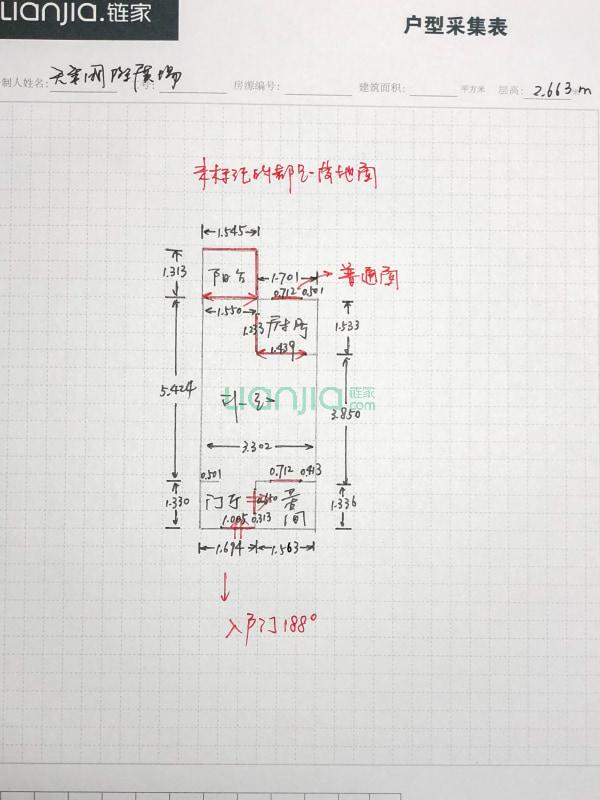 LIANJIA.链家
户型采集表
制人姓名:
号:
房源编号:
建筑面积: 平方米
层高: 2.663m
未标注的部分-落地窗
1.545
1.313
阳台
1.701
普通窗
0.712 0.501
1.550
1.233
厨房
1.533
1.439
5.424
LIANJIA 链家.com
3.850
3.302
0.501
0.712 0.413
1.330
门厅
1.336
1.005 0.313
1.694
1.563
入户门188°